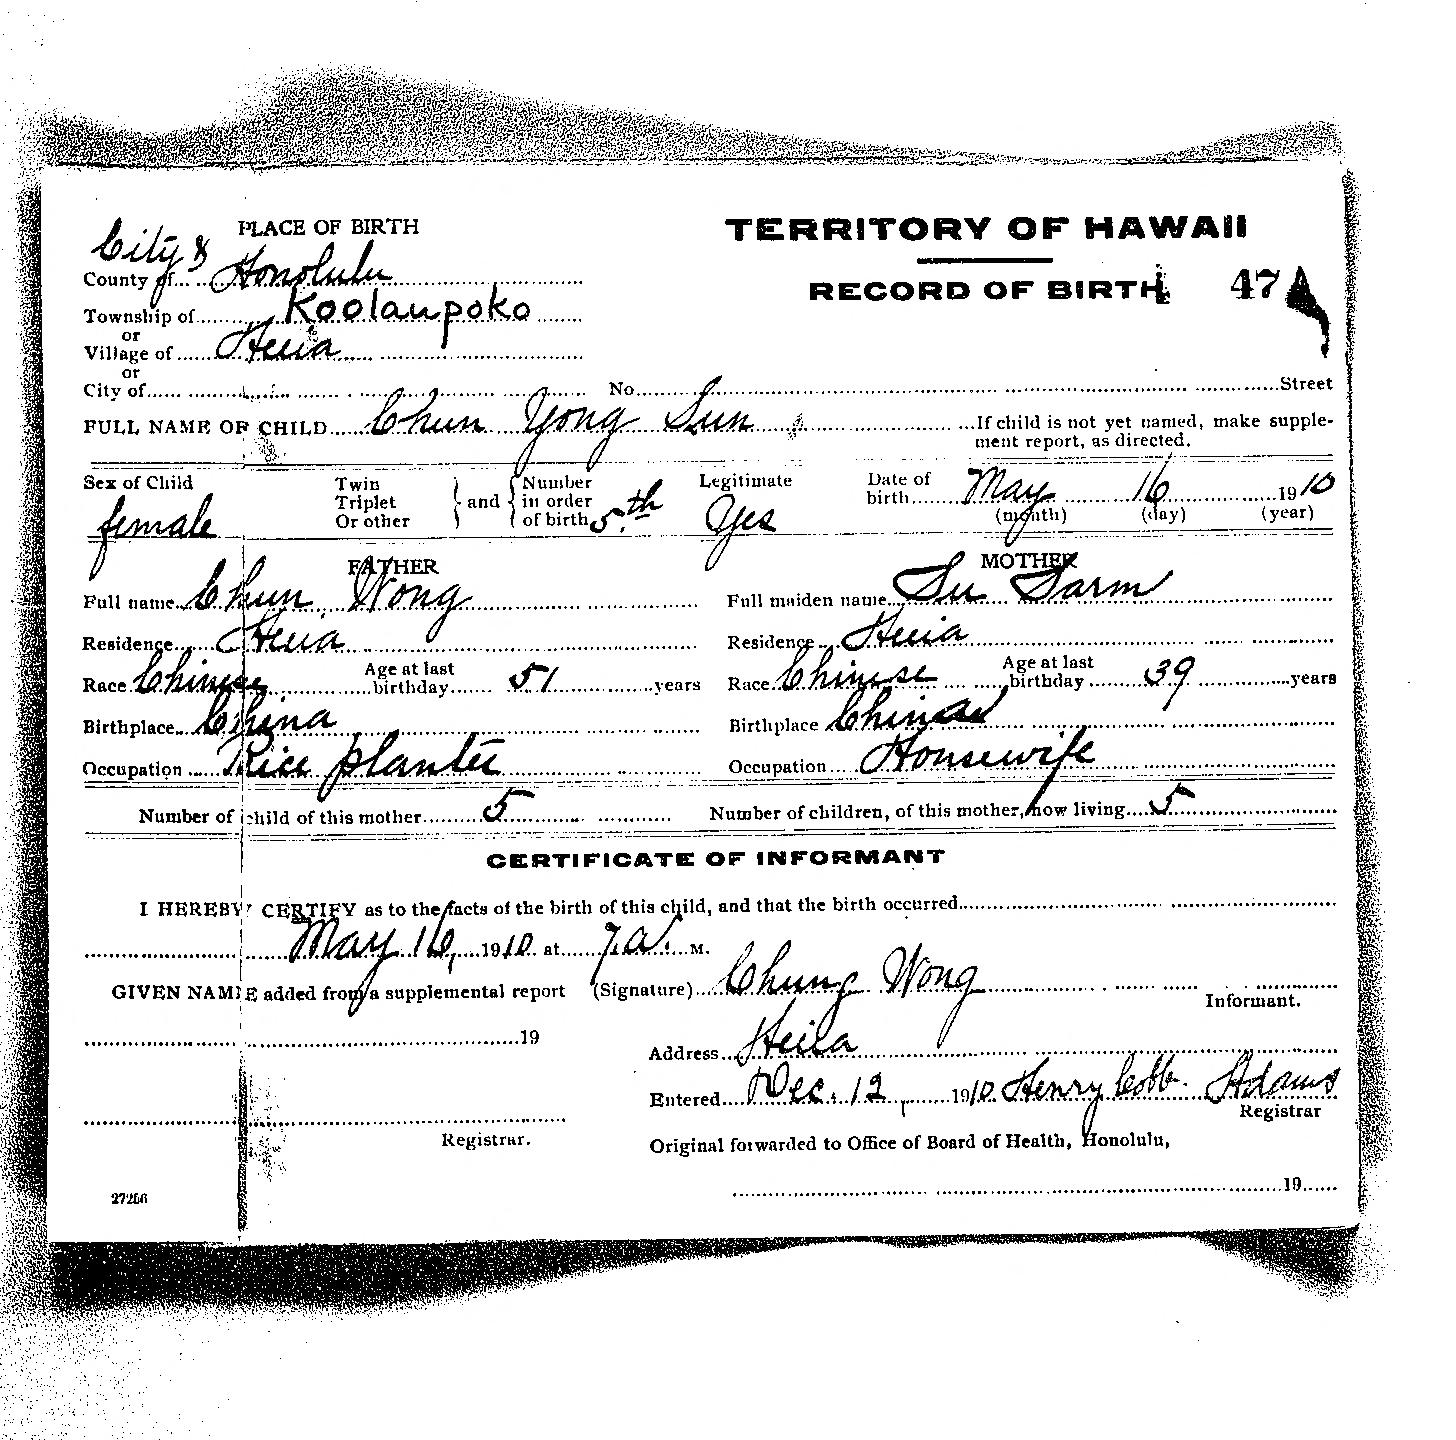 PLACE OF BIRTH
TERRITORY OF HAWAII
City &
County of Honolulu
RECORD OF BIRTH 47
Township of Koolaupoko
or
Village of Heeia
or
City of No. Street
FULL NAME OF CHILD Chun Yong Sun If child is not yet named, make supple-
ment report, as directed.
Sex of Child female
Twin
Triplet
Or other
and
Number
in order
of birth 5th
Legitimate
Yes
Date of
birth May 16 1910
(month) (day) (year)
FATHER
MOTHER
Full name Chun Wong
Full maiden name Su Sarm
Residence Heeia
Residence Heeia
Race Chinese Age at last
birthday 51 years
Race Chinese Age at last
birthday 39 years
Birthplace China
Birthplace China
Occupation Rice planter
Occupation Housewife
Number of child of this mother 5
Number of children, of this mother, now living 5
CERTIFICATE OF INFORMANT
I HEREBY CERTIFY as to the facts of the birth of this child, and that the birth occurred
May 16, 1910 at 7 a. M.
GIVEN NAME added from a supplemental report
(Signature) Chung Wong
Informant.
19
Address Heiia
Entered Dec. 12, 1910 Henry Cobb Adams
Registrar
Registrar.
Original forwarded to Office of Board of Health, Honolulu,
19
27266